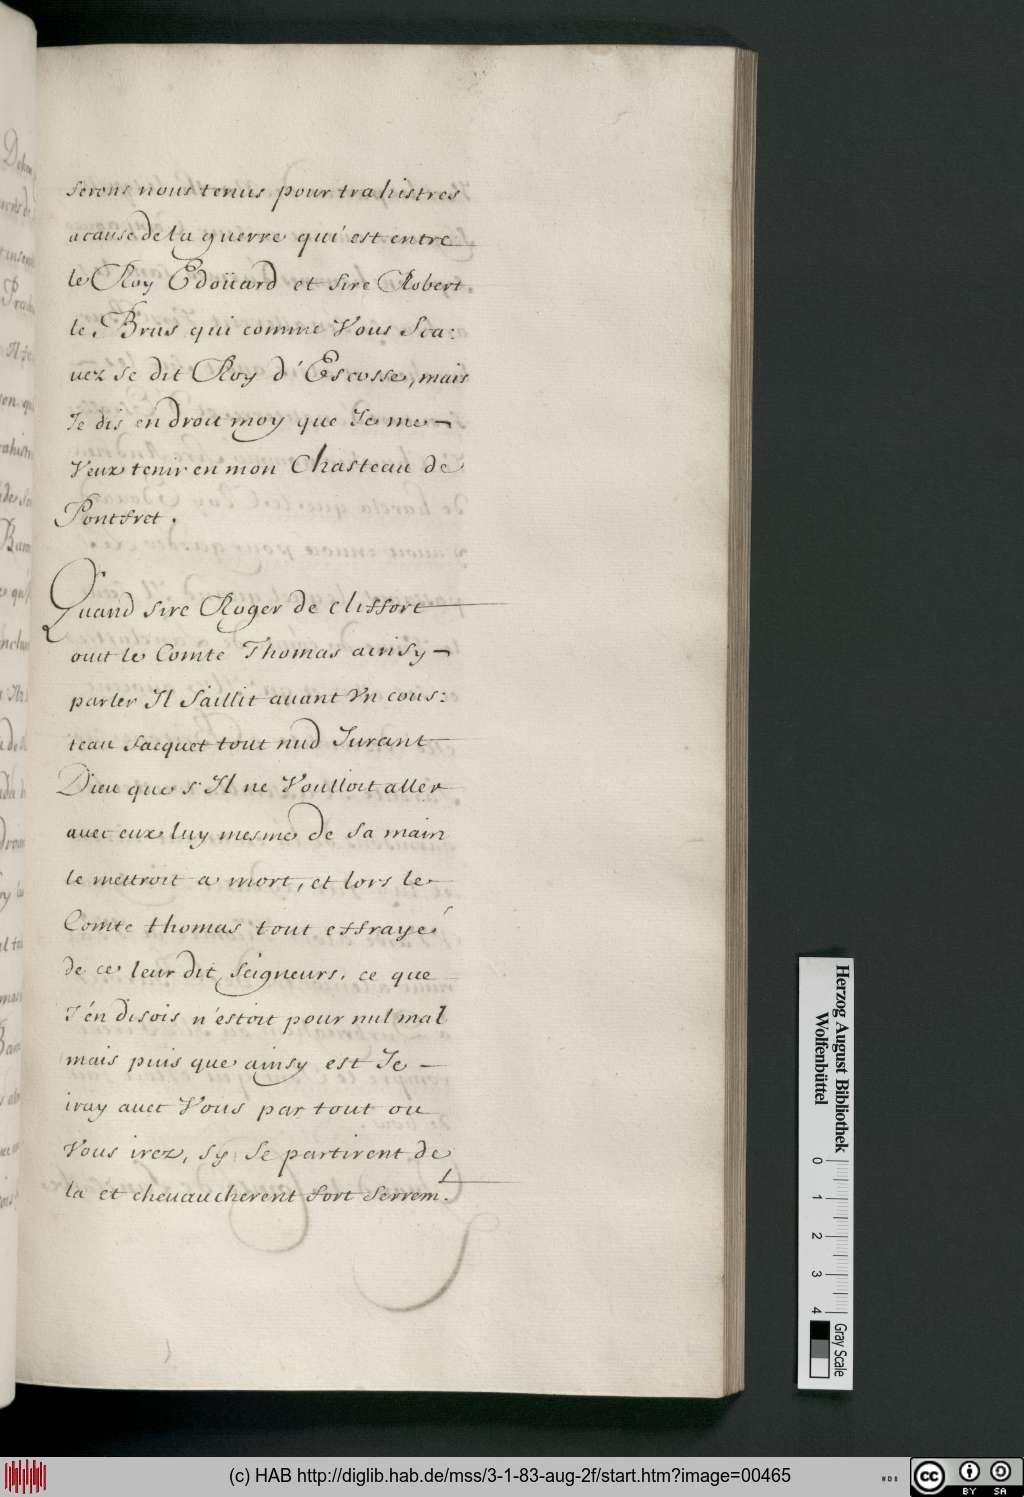 serons nous tenus pour trahistres
acause de la guerre qui est entre
le Roy Edoüard et sire Robert
le Brus qui comme Vous Sca:
uez se dit Roy d'Escosse, mais
Je dis endroit moy que Je me
Veux tenir en mon Chasteau de
Pontfret.
Quand sire Roger de cliffort
ouit le Comte Thomas ainsy
parler Il saillit auant Vn cous:
teau sacquet tout nud Jurant
Dieu que s'Il ne Voulloit aller
auec eux luy mesme de sa main
le mettroit a mort, et lors le
Comte thomas tout effrayé
de ce leur dit seigneurs, ce que
J'en disois n'estoit pour nul mal
mais puis que ainsy est Je
iray auec Vous par tout ou
Vous irez, sy se partirent de
la et cheuaucherent fort serrem.t
Herzog August Bibliothek
Wolfenbüttel
0 1 2 3 4
Gray Scale
(c) HAB http://diglib.hab.de/mss/3-1-83-aug-2f/start.htm?image=00465
WDB
cc BY SA